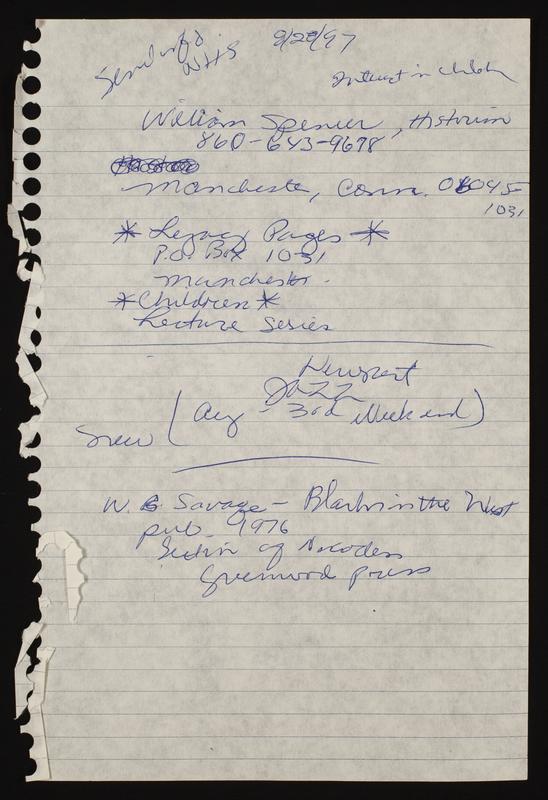 Send info 9/28/97
WHS
Interest in children
William Spencer, Historian
860-643-9678
Manchester, Conn. 06045
1031
* Legacy Pages *
P.O. Box 1031
Manchester.
*Children*
Lecture Series
Newport
Jazz
(Aug - 3rd Weekend)
W. S. Savage - Blacks in the West
pub. 1976
Section of Nicodemus
Greenwood Press